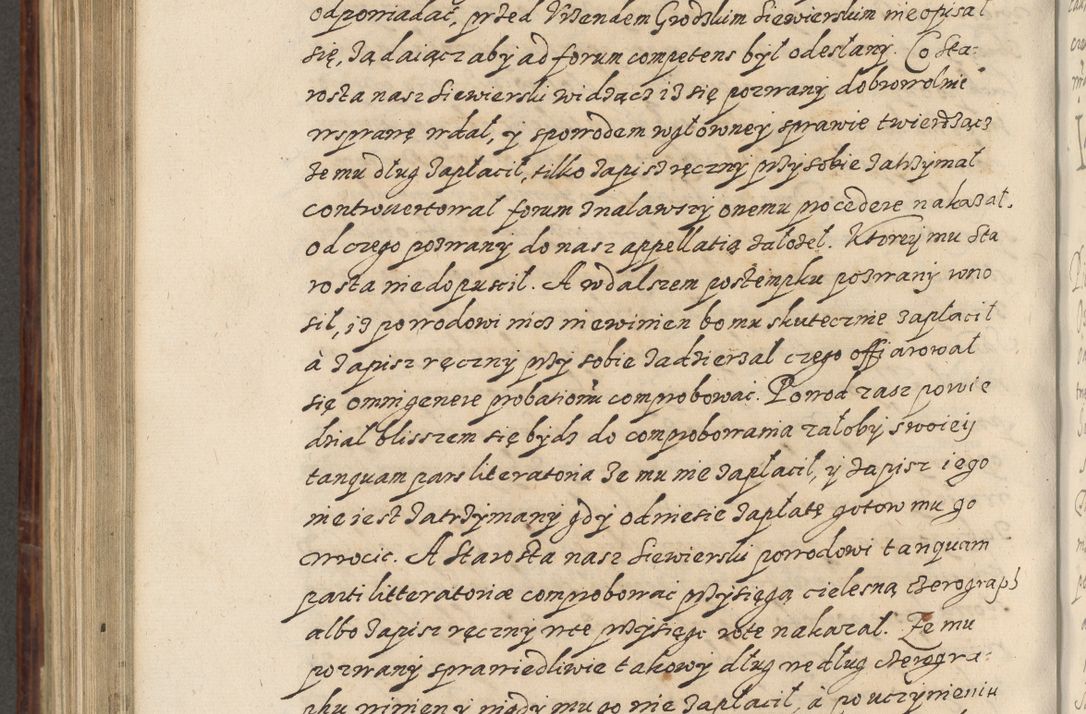 odpowiadać, przed Urzendem Grodzkim Siewierskim nie opisał
się, żądaiącz aby ad forum competens był odesłany. Co Sta:
rosta nasz Siewierski widzącz isz się pozwany dobrowolnie
wsprawę wdał, y spowodem wgłowney sprawie twierdzącz
że mu dług zapłacił, tilko zapisz ręczny przy sobie zatrzymał
controvertował forum ználawszy onemu procedere nakazał.
od czego pozwany do nasz appellatią załozeł. Ktorey mu Sta
rosta niedopuscił. A wdalszem postempku pozwany wno
sił, isz powodowi nicz niewinien bo mu skutecznie zapłacił
à zapisz ręczny przy sobie zadzierzał czego offiarował
się omni genere probationū comprobować. Powod zasz powie
dział blisszem się bydz do comprobowania załoby swoiey
tanquam pars literatoria że mu nie zapłacił, y zapisz iego
nie iest zatrzymany gdy odniesie zapłatę gotow mu go
wrocic. A Starosta nasz Siewierski powodowi tanquam
parti litteratoriæ comprobować przysięgą cielesną cherograph
albo zapisz ręczny wte przysięgę rote nakazał. Że mu
pozwany sprawiedliwie takowy dług według cherogra:
phu winien y nigdy mu go nie zapłacił, à po uczynieniu